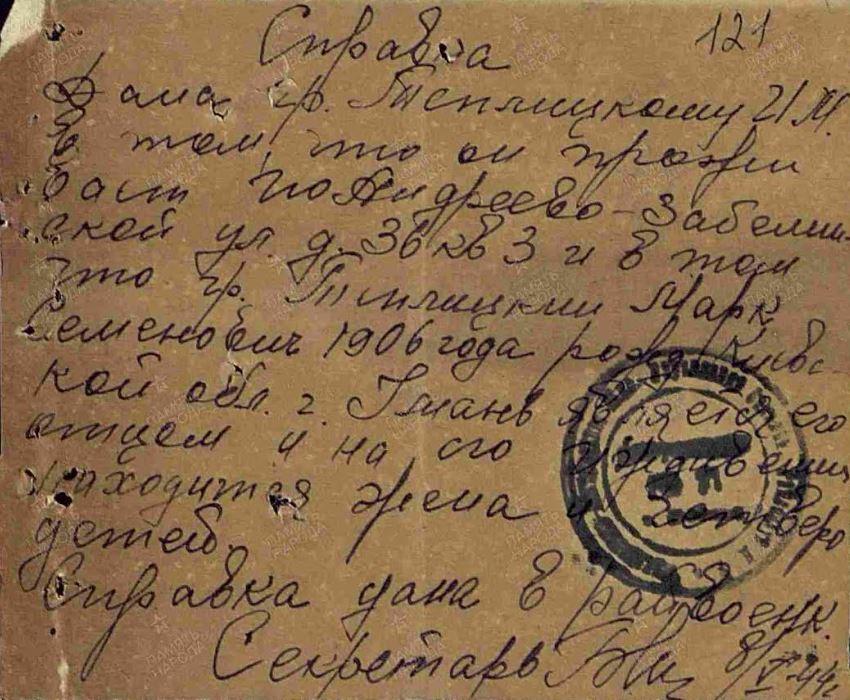 121
Справка
Дана гр. Теплицкому И М.
в том, что он прожи
вает по Андреево-Забелин-
ской ул. д. 36 кв 3 и в том
что гр. Теплицкий Марк
Семенович 1906 года рожд Киевс
кой обл. г. Умань является его
отцем и на его иждивении
находится жена и
детей.
Справка дана в райвоенк.
Секретарь 8/V-44г
ПАМЯТЬ НАРОДА